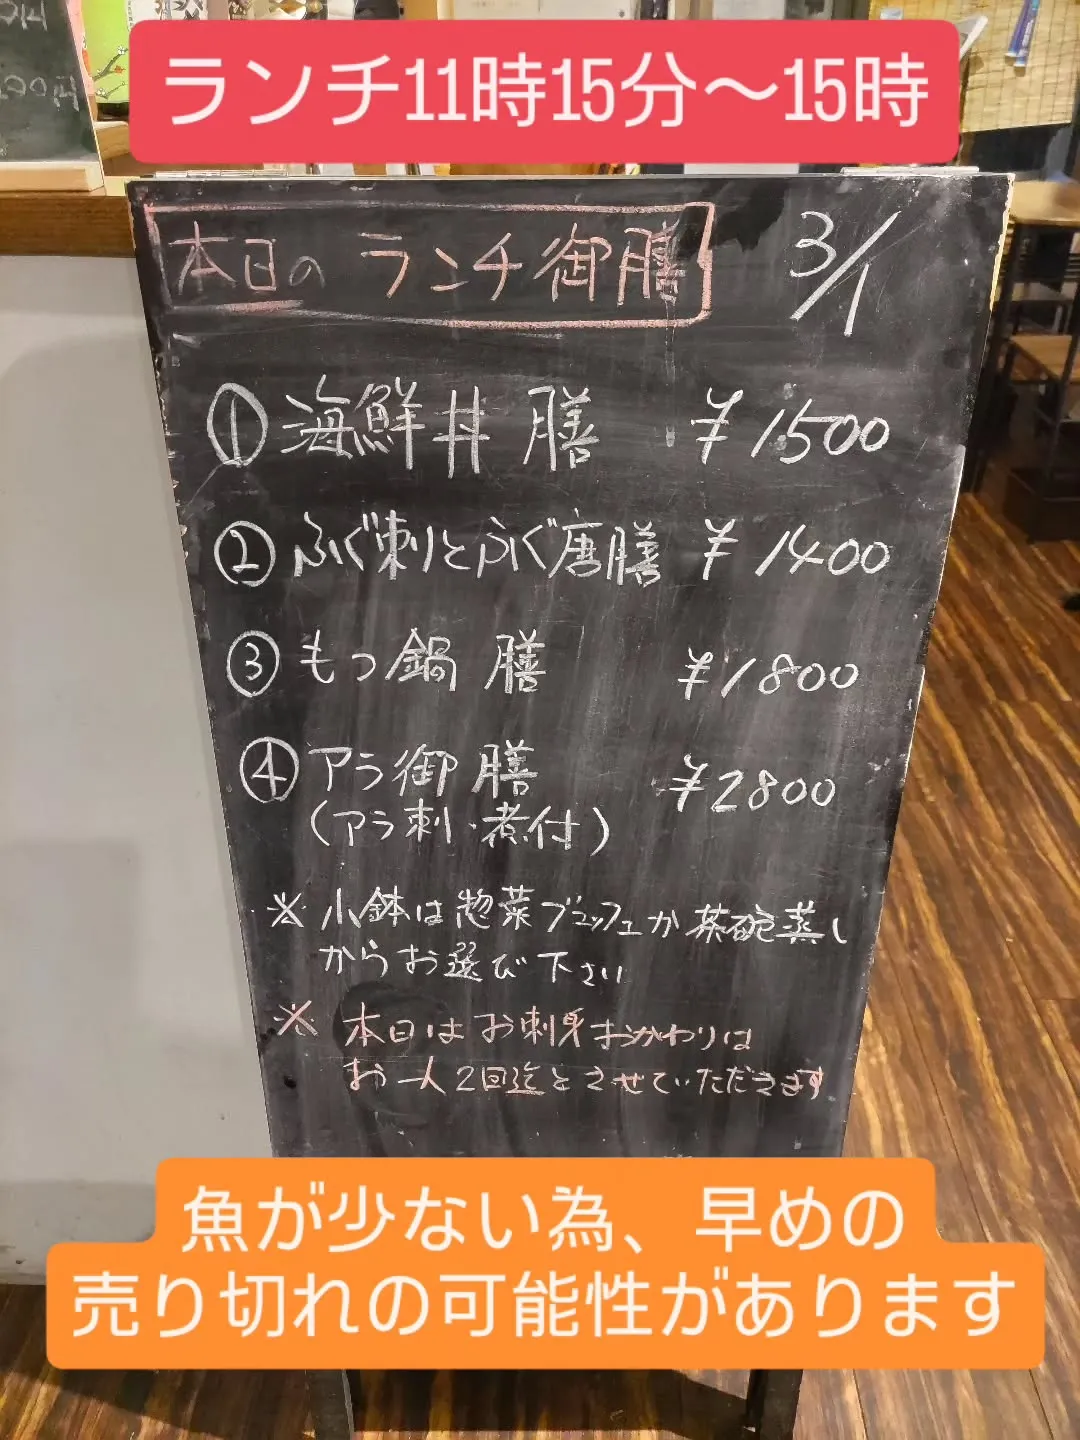 ランチ11時15分〜15時
本日の ランチ御膳 3/1
①海鮮丼 膳 ¥1500
②ふぐ刺とふぐ唐膳 ¥1400
③もつ鍋 膳 ¥1800
④アラ御膳 ¥2800
(アラ刺・煮付)
※小鉢は惣菜ブュッフェか茶碗蒸し
からお選び下さい
※ 本日はお刺身おかわりは
お一人2回迄とさせていただきます
魚が少ない為、早めの
売り切れの可能性があります